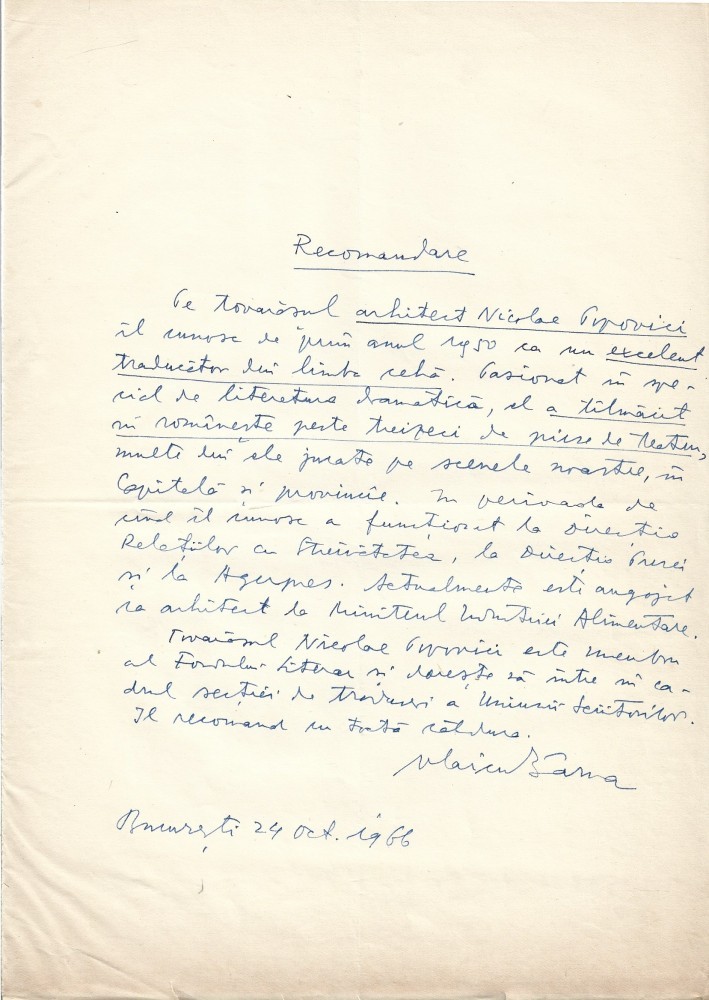 Recomandare
Pe tovarășul arhitect Nicolae Popovici
îl cunosc de prin anul 1950 ca un excelent
traducător din limba cehă. Pasionat în spe-
cial de literatura dramatică, el a tălmăcit
în românește peste treizeci de piese de teatru,
multe din ele jucate pe scenele noastre, în
Capitală și provincie. În perioada de
cînd îl cunosc a funcționat la Direcția
Relațiilor cu Streinătatea, la Direcția Presei
și la Agerpres. Actualmente este angajat
ca arhitect la Ministerul Industriei Alimentare.
Tovarășul Nicolae Popovici este membru
al Fondului Literar și dorește să intre în ca-
drul secției de traduceri a Uniunii Scriitorilor.
Îl recomand cu toată căldura.
Vlaicu Bârna
București 24 oct. 1966